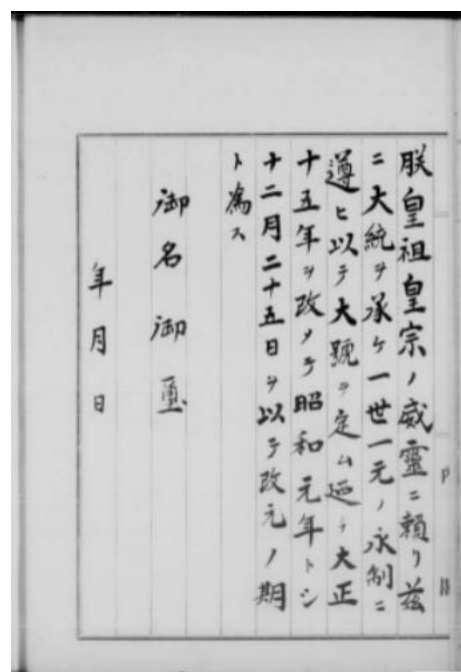 朕皇祖皇宗ノ威靈ニ頼リ茲
ニ大統ヲ承ケ一世一元ノ永制ニ
遵ヒ以テ大號ヲ定ム廼チ大正
十五年ヲ改メテ昭和元年トシ
十二月二十五日ヲ以テ改元ノ期
ト為ス
御名御璽
年月日